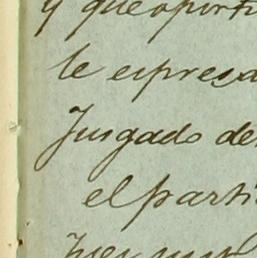 y que oportu
le espresa
Juzgado de
el parti